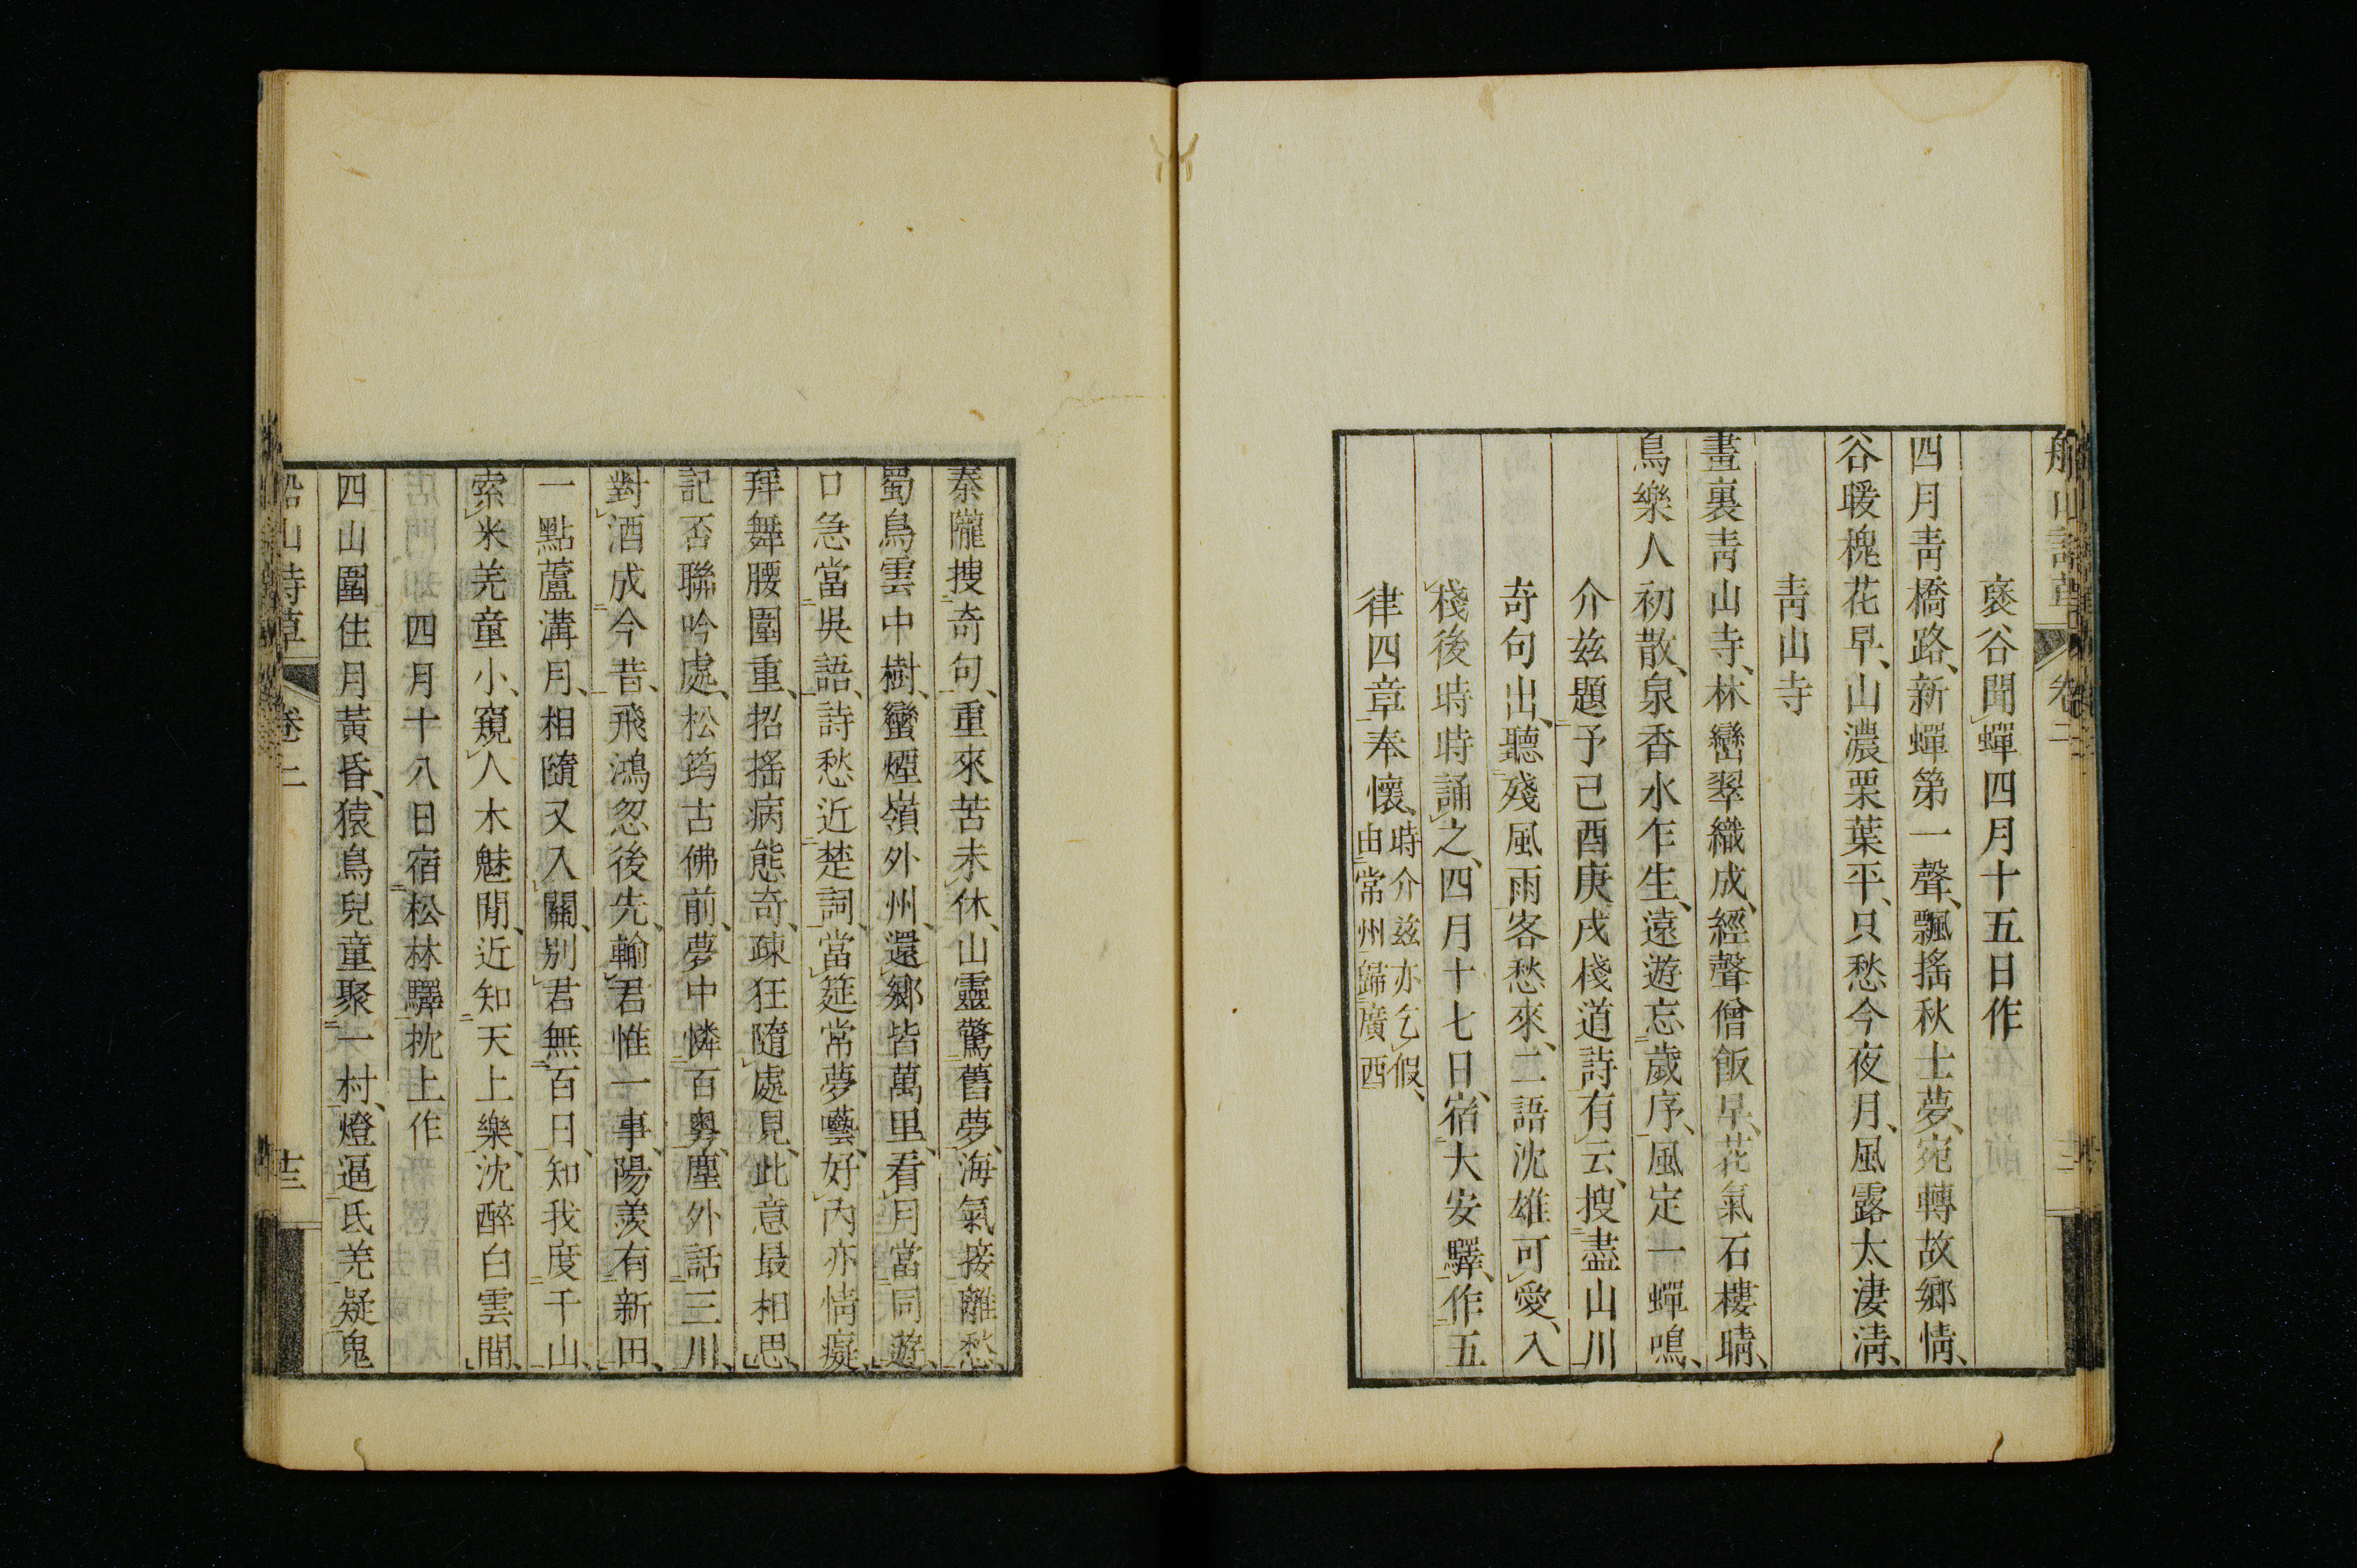 船山詩草 卷二
褒谷聞蟬四月十五日作
四月靑橋路、新蟬第一聲、飄搖秋士夢、宛轉故鄉情、
谷暖槐花早、山濃栗葉平、只愁今夜月、風露太淒淸、
靑山寺
畫裏靑山寺、林巒翠織成、經聲僧飯早、花氣石樓晴、
鳥樂人初散、泉香水乍生、遠遊忘歲序、風定一蟬鳴、
介玆題予己酉庚戌棧道詩有云、搜盡山川
奇句出、聽殘風雨客愁來、二語沈雄可愛、入
棧後時時誦之、四月十七日、宿大安驛、作五
律四章奉懷、時介玆亦乞假、由常州歸廣西
秦隴搜奇句、重來苦未休、山靈驚舊夢、海氣接離愁、
蜀鳥雲中樹、蠻煙嶺外州、還鄉皆萬里、看月當同遊、
口急當吳語、詩愁近楚詞、當筵常夢囈、好內亦情癡、
拜舞腰圍重、招搖病態奇、疎狂隨處見、此意最相思、
記否聯吟處、松筠古佛前、夢中憐百粵、塵外話三川、
對酒成今昔、飛鴻忽後先、輸君惟一事、陽羨有新田、
一點蘆溝月、相隨又入關、別君無百日、知我度千山、
索米羌童小、窺人木魅閒、近知天上樂、沈醉白雲間、
四月十八日宿松林驛枕上作
四山圍住月黃昏、猿鳥兒童聚一村、燈逼氐羌疑鬼
船山詩草 卷二 十三